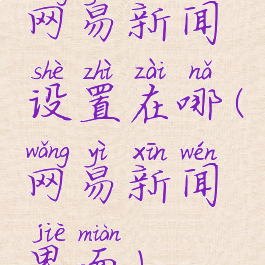 网易新闻
shè zhì zài nǎ
设置在哪(
wǎng yì xīn wén
网易新闻
jiè miàn
界面)